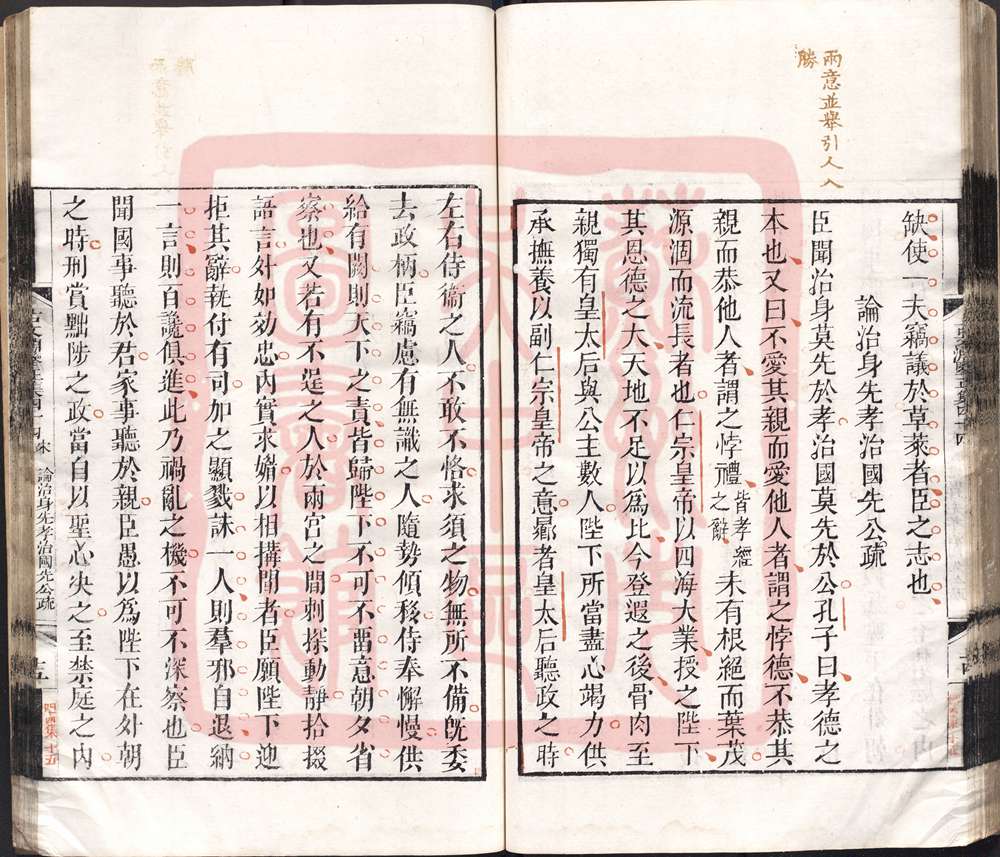 兩意並舉引人入
勝
缺使一夫竊議於草萊者臣之志也
論治身先孝治國先公疏
臣聞治身莫先於孝治國莫先於公孔子曰孝德之
本也又曰不愛其親而愛他人者謂之悖德不恭其
親而恭他人者謂之悖禮皆孝經之辭未有根絕而葉茂
源涸而流長者也仁宗皇帝以四海大業授之陛下
其恩德之大天地不足以為比今登遐之後骨肉至
親獨有皇太后與公主數人陛下所當盡心竭力供
承撫養以副仁宗皇帝之意曏者皇太后聽政之時
左右侍衞之人不敢不恪求須之物無所不備旣委
去政柄臣竊慮有無識之人隨勢傾移侍奉懈慢供
給有闕則天下之責皆歸陛下不可不畱意朝夕省
察也又若有不逞之人於兩宮之間刺探動靜拾掇
語言外如効忠內實求媚以相搆間者臣願陛下迎
拒其辭執付有司加之顯戮誅一人則羣邪自退納
一言則百讒俱進此乃禍亂之機不可不深察也臣
聞國事聽於君家事聽於親臣愚以爲陛下在外朝
之時刑賞黜陟之政當自以聖心決之至禁庭之內
論治身先孝治國先公疏
十五